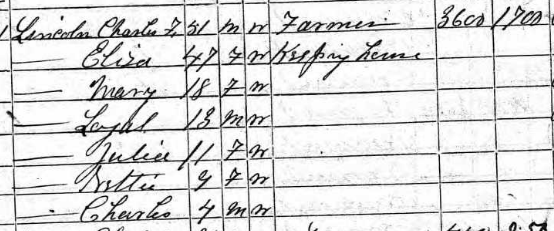 1 Lincoln Charles F. 51 M W Farmer 3600 1700
— Eliza 47 F W Keeping house
— Mary 18 F W
— Loyal 13 M W
— Julia 11 F W
— Nettie 9 F W
— Charles 4 M W